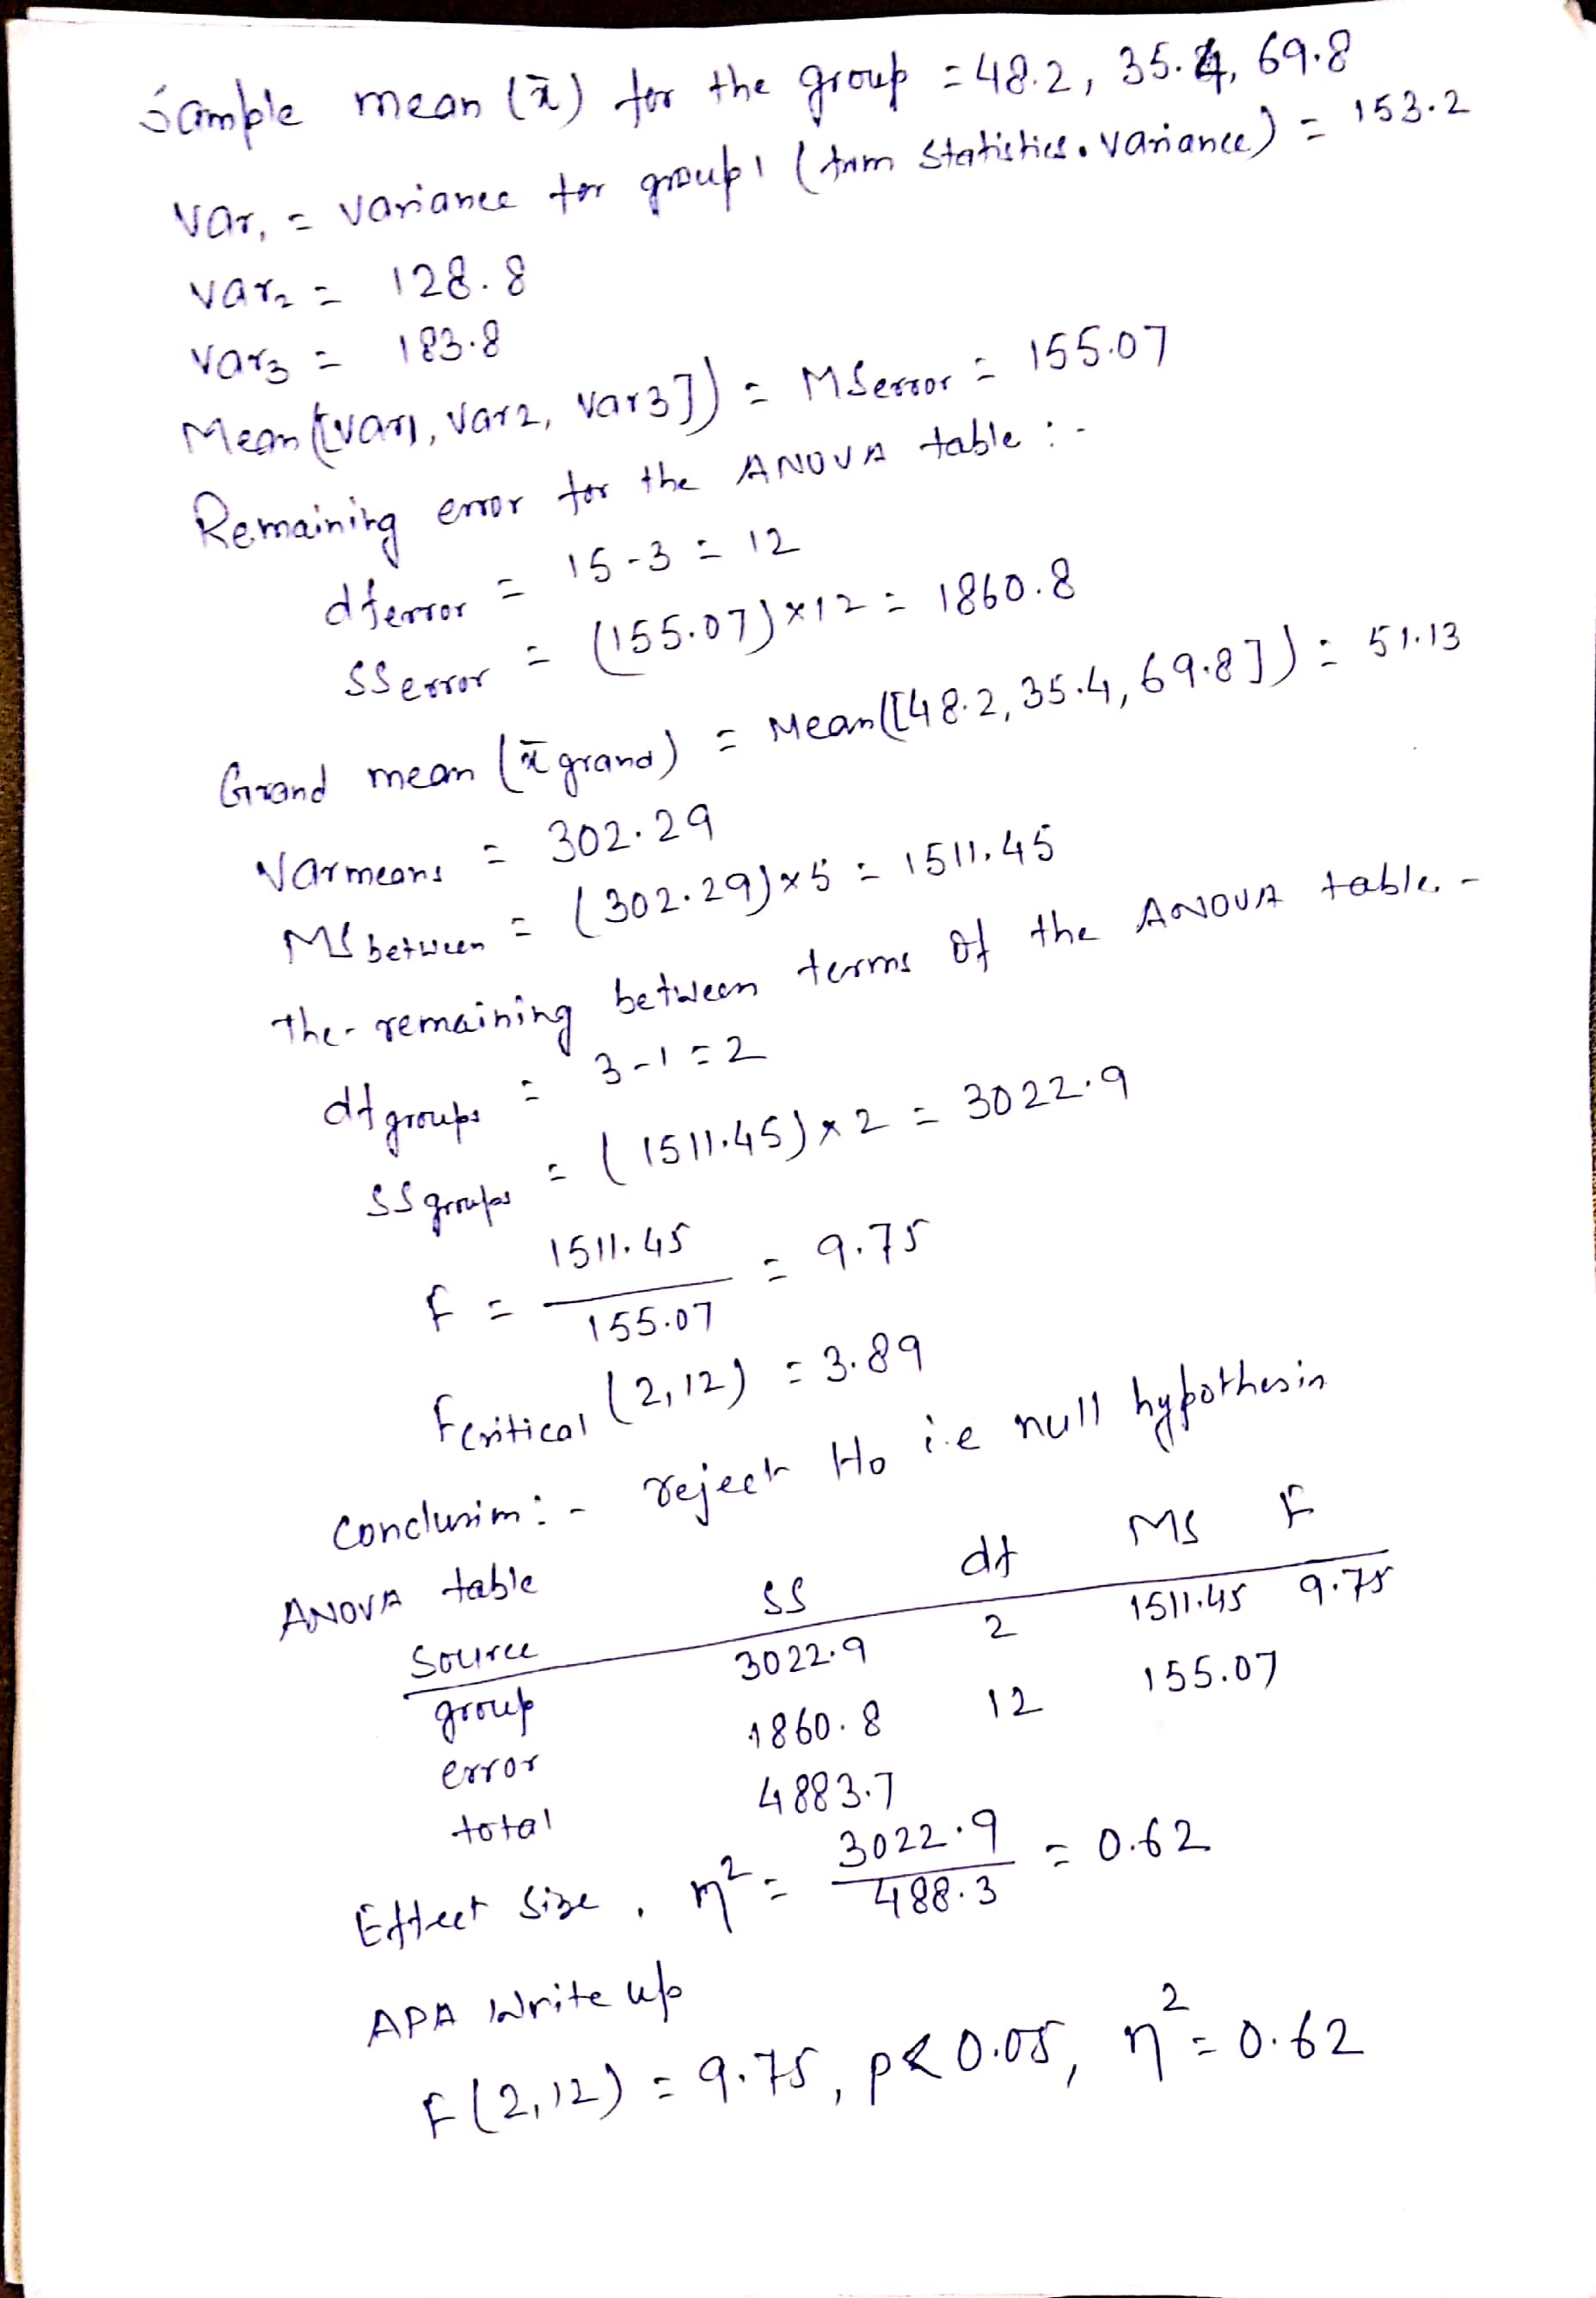 Sample mean (x̄) for the group = 48.2, 35.4, 69.8
Var₁ = variance for group1 (from statistics. variance) = 153.2
Var₂ = 128.8
Var₃ = 183.8
Mean([var1, var2, var3]) = MSerror = 155.07
Remaining error for the ANOVA table :-
dferror = 15-3 = 12
SSerror = (155.07)×12 = 1860.8
Grand mean (x̄ grand) = Mean([48.2, 35.4, 69.8]) = 51.13
Varmeans = 302.29
MSbetween = (302.29)×5 = 1511.45
The remaining between terms of the ANOVA table. -
dfgroups = 3-1 = 2
SSgroups = (1511.45)×2 = 3022.9
F = 1511.45 / 155.07 = 9.75
Fcritical (2,12) = 3.89
Conclusion :- reject Ho i.e null hypothesis
ANOVA table
Source SS df MS F
group 3022.9 2 1511.45 9.75
error 1860.8 12 155.07
total 4883.7
Effect size, η² = 3022.9 / 488.3 = 0.62
APA write up
F(2,12) = 9.75, p < 0.05, η² = 0.62